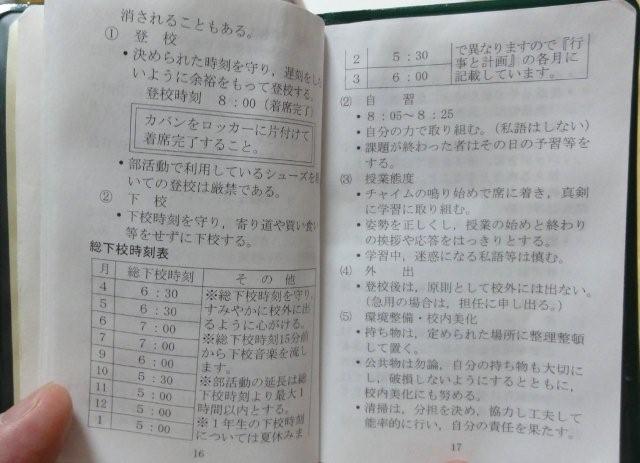 消されることもある。
① 登　校
・決められた時刻を守り，遅刻をし
いように余裕をもって登校する。
登校時刻　8：00（着席完了）
カバンをロッカーに片付けて
着席完了すること。
・部活動で利用しているシューズを
いての登校は厳禁である。
② 下　校
・下校時刻を守り，寄り道や買い食い
等をせずに下校する。
総下校時刻表
月　総下校時刻　その他
4　6：30
5　6：30
6　7：00
7　7：00
9　6：00
10　5：30
11　5：00
12　5：00
1　5：00
※総下校時刻を守り，
すみやかに校外に出
るように心がける。
※総下校時刻15分前
から下校音楽を流し
ます。
※部活動の延長は総
下校時刻より最大1
時間以内とする。
※1年生の下校時刻
については夏休みま
16
2　5：30
3　6：00
で異なりますので『行
事と計画』の各月に
記載しています。
⑵ 自　習
・8：05～8：25
・自分の力で取り組む。（私語はしない）
・課題が終わった者はその日の予習等を
する。
⑶ 授業態度
・チャイムの鳴り始めで席に着き，真剣
に学習に取り組む。
・姿勢を正しくし，授業の始めと終わり
の挨拶や応答をはっきりとする。
・学習中，迷惑になる私語等は慎む。
⑷ 外　出
・登校後は，原則として校外には出ない。
（急用の場合は，担任に申し出る。）
⑸ 環境整備・校内美化
・持ち物は，定められた場所に整理整頓
して置く。
・公共物は勿論，自分の持ち物も大切に
し，破損しないようにするとともに，
校内美化にも努める。
・清掃は，分担を決め，協力し工夫して
能率的に行い，自分の責任を果たす。
17